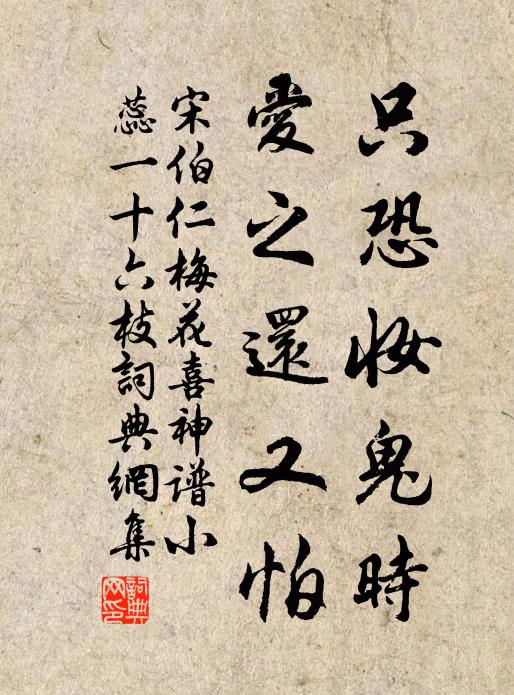 只恐妆鬼時
愛之還又怕
宋伯仁梅花喜神谱小
蕊一十六枝詞典網集
詞典
网印